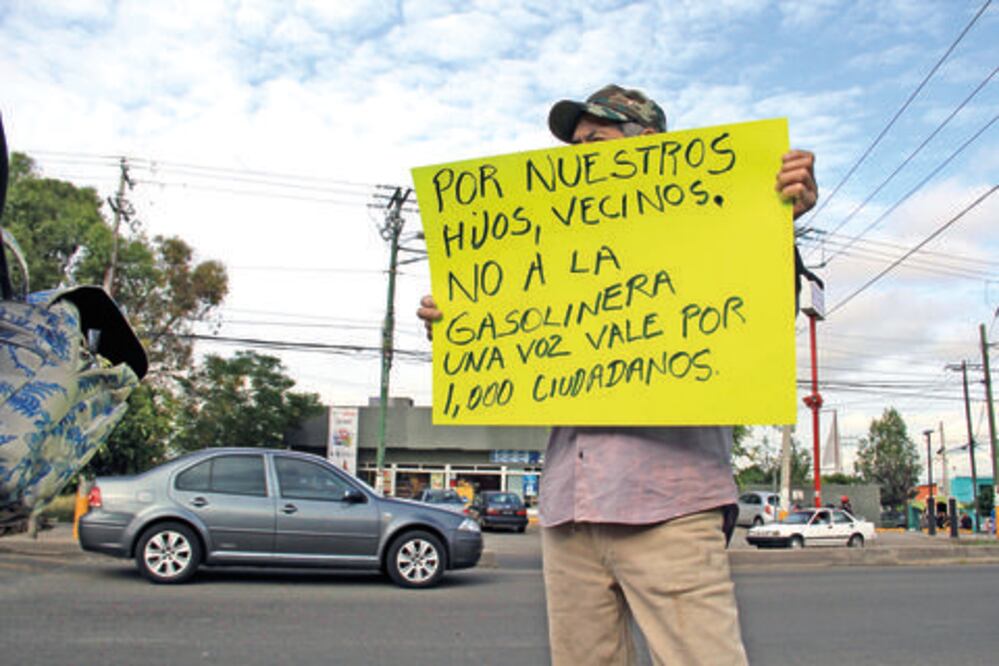 POR NUESTROS
HIJOS, VECINOS.
NO A LA
GASOLINERA
UNA VOZ VALE POR
1,000 CIUDADANOS.